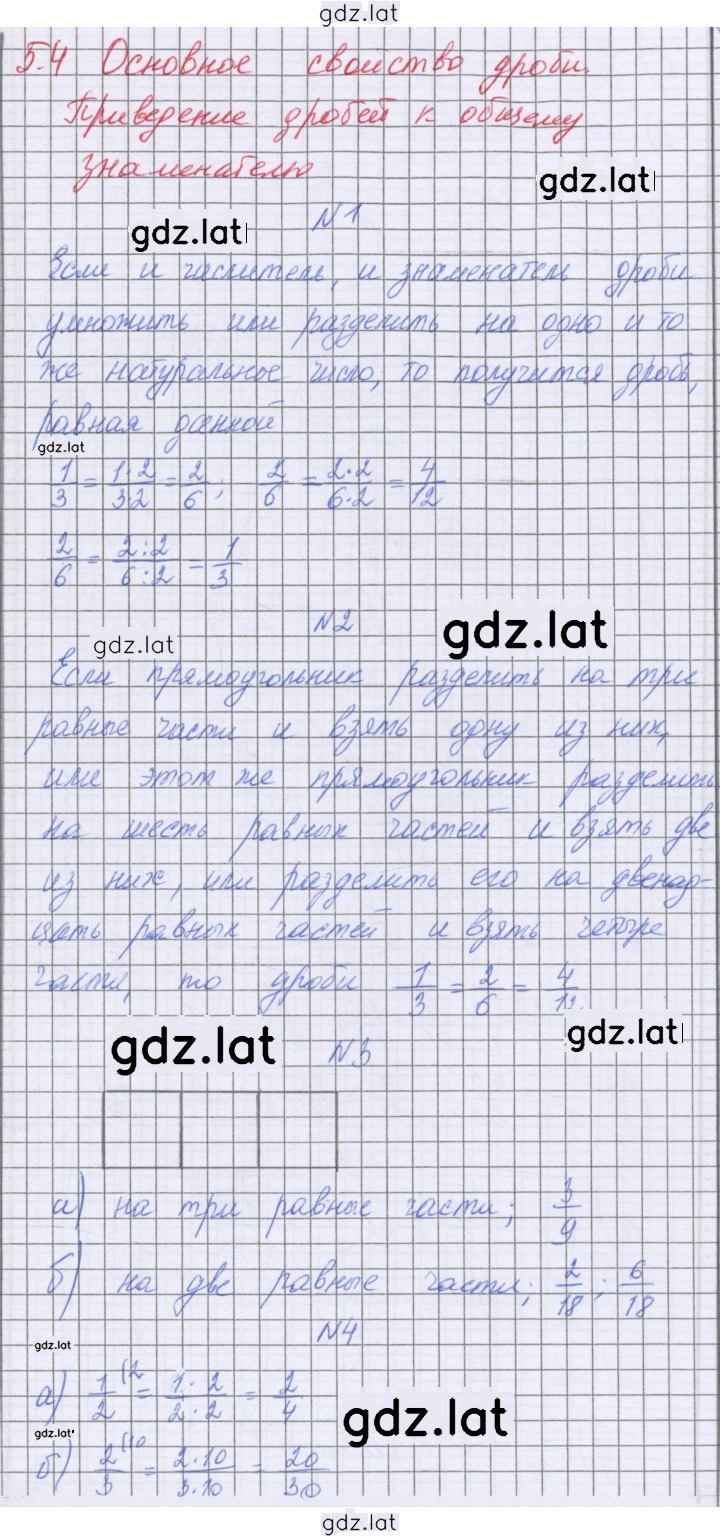 gdz.lat
5.4 Основное свойство дроби.
Приведение дробей к общему
знаменателю
gdz.lat
N1
gdz.lat
Если и числитель, и знаменатель дроби
умножить или разделить на одно и то
же натуральное число, то получится дробь,
равная данной
gdz.lat
1/3 = 1·2/3·2 = 2/6; 2/6 = 2·2/6·2 = 4/12
2/6 = 2:2/6:2 = 1/3
N2
gdz.lat
gdz.lat
Если прямоугольник разделить на три
равные части и взять одну из них,
или этот же прямоугольник разделить
на шесть равных частей и взять две
из них, или разделить его на двенад-
цать равных частей и взять четыре
части, то дроби 1/3 = 2/6 = 4/12
gdz.lat
gdz.lat
N3
а) на три равные части; 3/9
б) на две равные части; 2/18; 6/18
N4
gdz.lat
а) 1/2 (2 = 1·2/2·2 = 2/4
gdz.lat
gdz.lat
б) 2/3 (10 = 2·10/3·10 = 20/30
gdz.lat